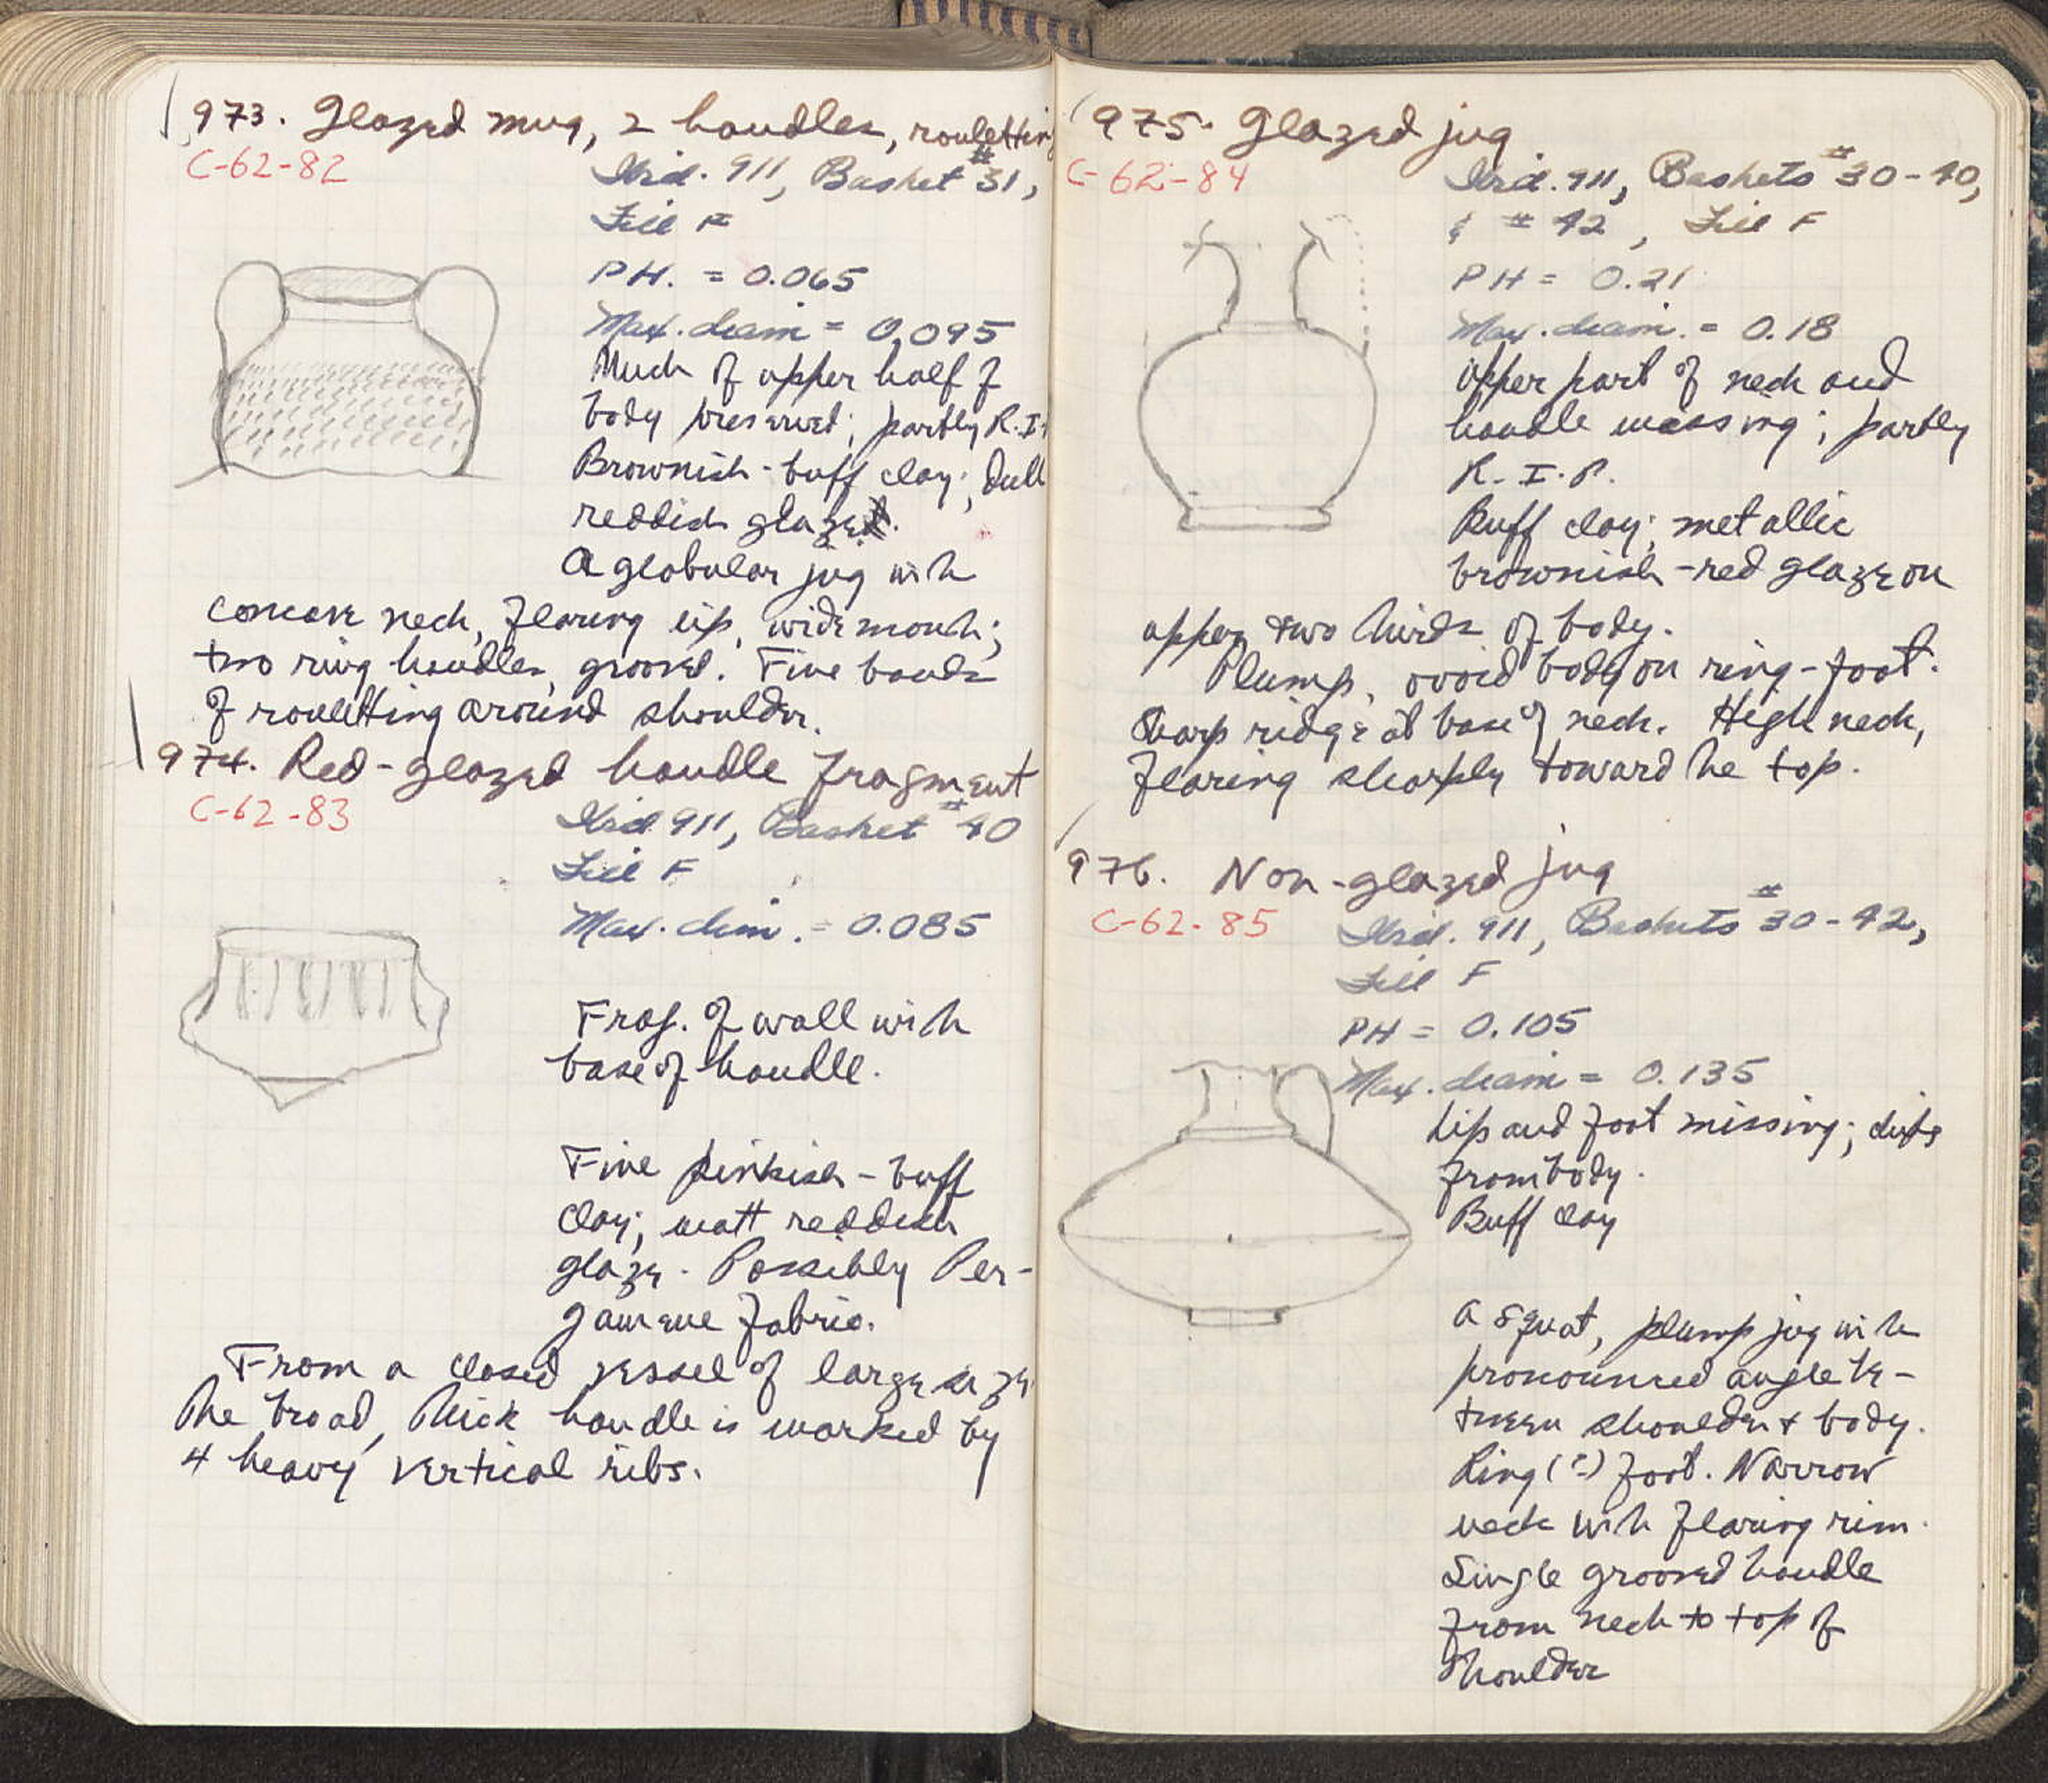 973. Glazed mug, 2 handles, rouletting
C-62-82
Grid. 911, Basket #31,
Fill F
PH. = 0.065
Max. diam = 0.095
Much of upper half of
body preserved; partly R.I.
Brownish-buff clay; dull
reddish glaze.
A globular jug with
concave neck, flaring lip, wide mouth;
two ring handles, grooved. Five bands
of rouletting around shoulder.
974. Red-glazed handle fragment
C-62-83
Grid 911, Basket #40
Fill F
Max. dim. = 0.085
Frag. of wall with
base of handle.
Fine pinkish-buff
clay; matt reddish
glaze. Possibly Per-
gamene fabric.
From a closed vessel of large size.
The broad, thick handle is marked by
4 heavy vertical ribs.
975. Glazed jug
C-62-84
Grid. 911, Baskets #30-40,
& #42, Fill F
PH = 0.21
Max. diam. = 0.18
Upper part of neck and
handle missing; partly
R.I.P.
Buff clay; metallic
brownish-red glaze on
upper two thirds of body.
Plump, ovoid body on ring-foot.
Sharp ridge at base of neck. High neck,
flaring sharply toward the top.
976. Non-glazed jug
C-62-85
Grid. 911, Baskets #30-42,
Fill F
PH = 0.105
Max. diam = 0.135
Lip and foot missing; chips
from body.
Buff clay
A squat, plump jug with
pronounced angle be-
tween shoulder & body.
Ring (?) foot. Narrow
neck with flaring rim.
Single grooved handle
from neck to top of
shoulder